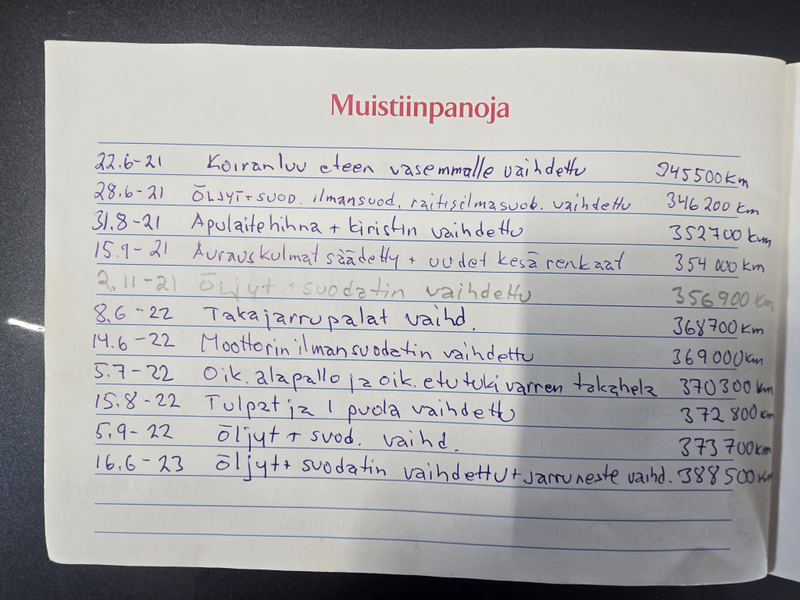 Muistiinpanoja
22.6-21 Koiranluu eteen vasemmalle vaihdettu 345500km
28.6-21 Öljyt+suod. ilmansuod, raitisilmasuod. vaihdettu 346200 km
31.8-21 Apulaitehihna + kiristin vaihdettu 352700 km
15.9-21 Aurauskulmat säädetty + uudet kesärenkaat 354000km
2.11-21 Öljyt + suodatin vaihdettu 356900 km
8.6-22 Takajarrupalat vaihd. 368700km
14.6-22 Moottorin ilmansuodatin vaihdettu 369000km
5.7-22 Oik. alapallo ja oik. etutukivarren takahela 370300km
15.8-22 Tulpat ja 1 puola vaihdettu 372800km
5.9-22 Öljyt + suod. vaihd. 373700km
16.6-23 Öljyt+ suodatin vaihdettu+jarruneste vaihd. 388500km